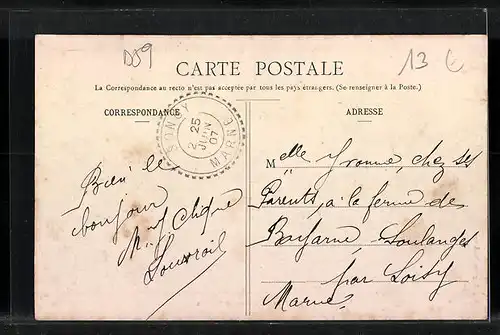 D59
13 €
CARTE POSTALE
La Correspondance au recto n'est pas acceptée par tous les pays étrangers. (Se renseigner à la Poste.)
CORRESPONDANCE
ADRESSE
SONGY
2 25
JUIN
07
MARNE
Bien le
bonjour
Melle Yvonne, chez ses
Parents, à la ferme de
Soulanges
par Loisy
Marne